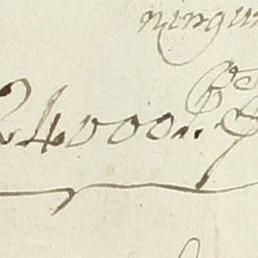 ningun
24000